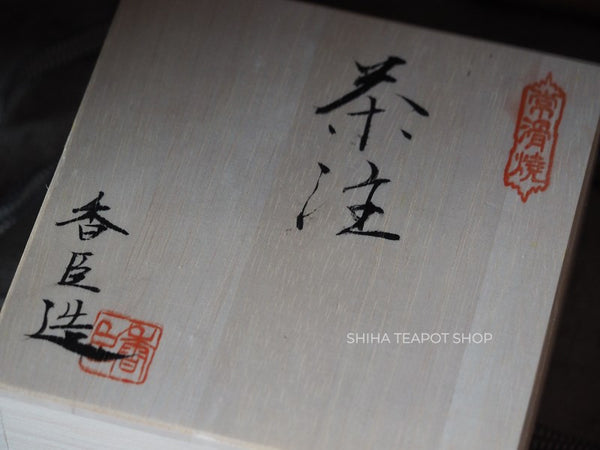 常滑焼
茶注
香臣造
香臣
SHIHA TEAPOT SHOP